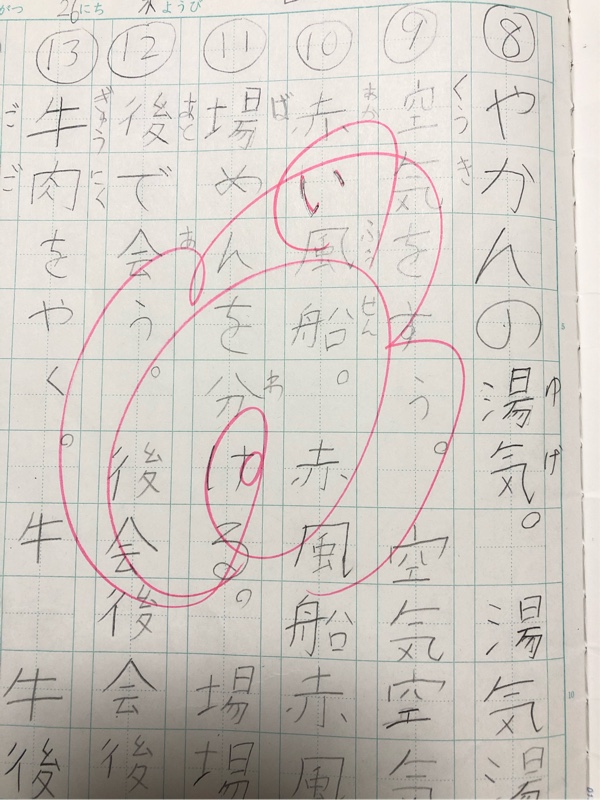 がつ 26にち ようび
⑧やかんの湯気。 湯気湯
ゆげ
⑨空気をすう。 空気空気
くうき
⑩赤い風船。 赤風船赤風
あか ふう せん
⑪場めんを分ける。 場場
ば わ
⑫後で会う。 後会後会後
あと あ
⑬牛肉をやく。 牛 牛後
ぎゅう にく
ごご